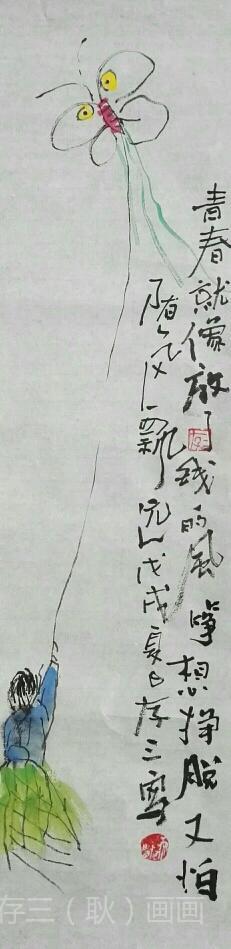 青春就像放了线的风筝想挣脱又怕
随风飘远戊戌夏日存三写
存三（耿）画画